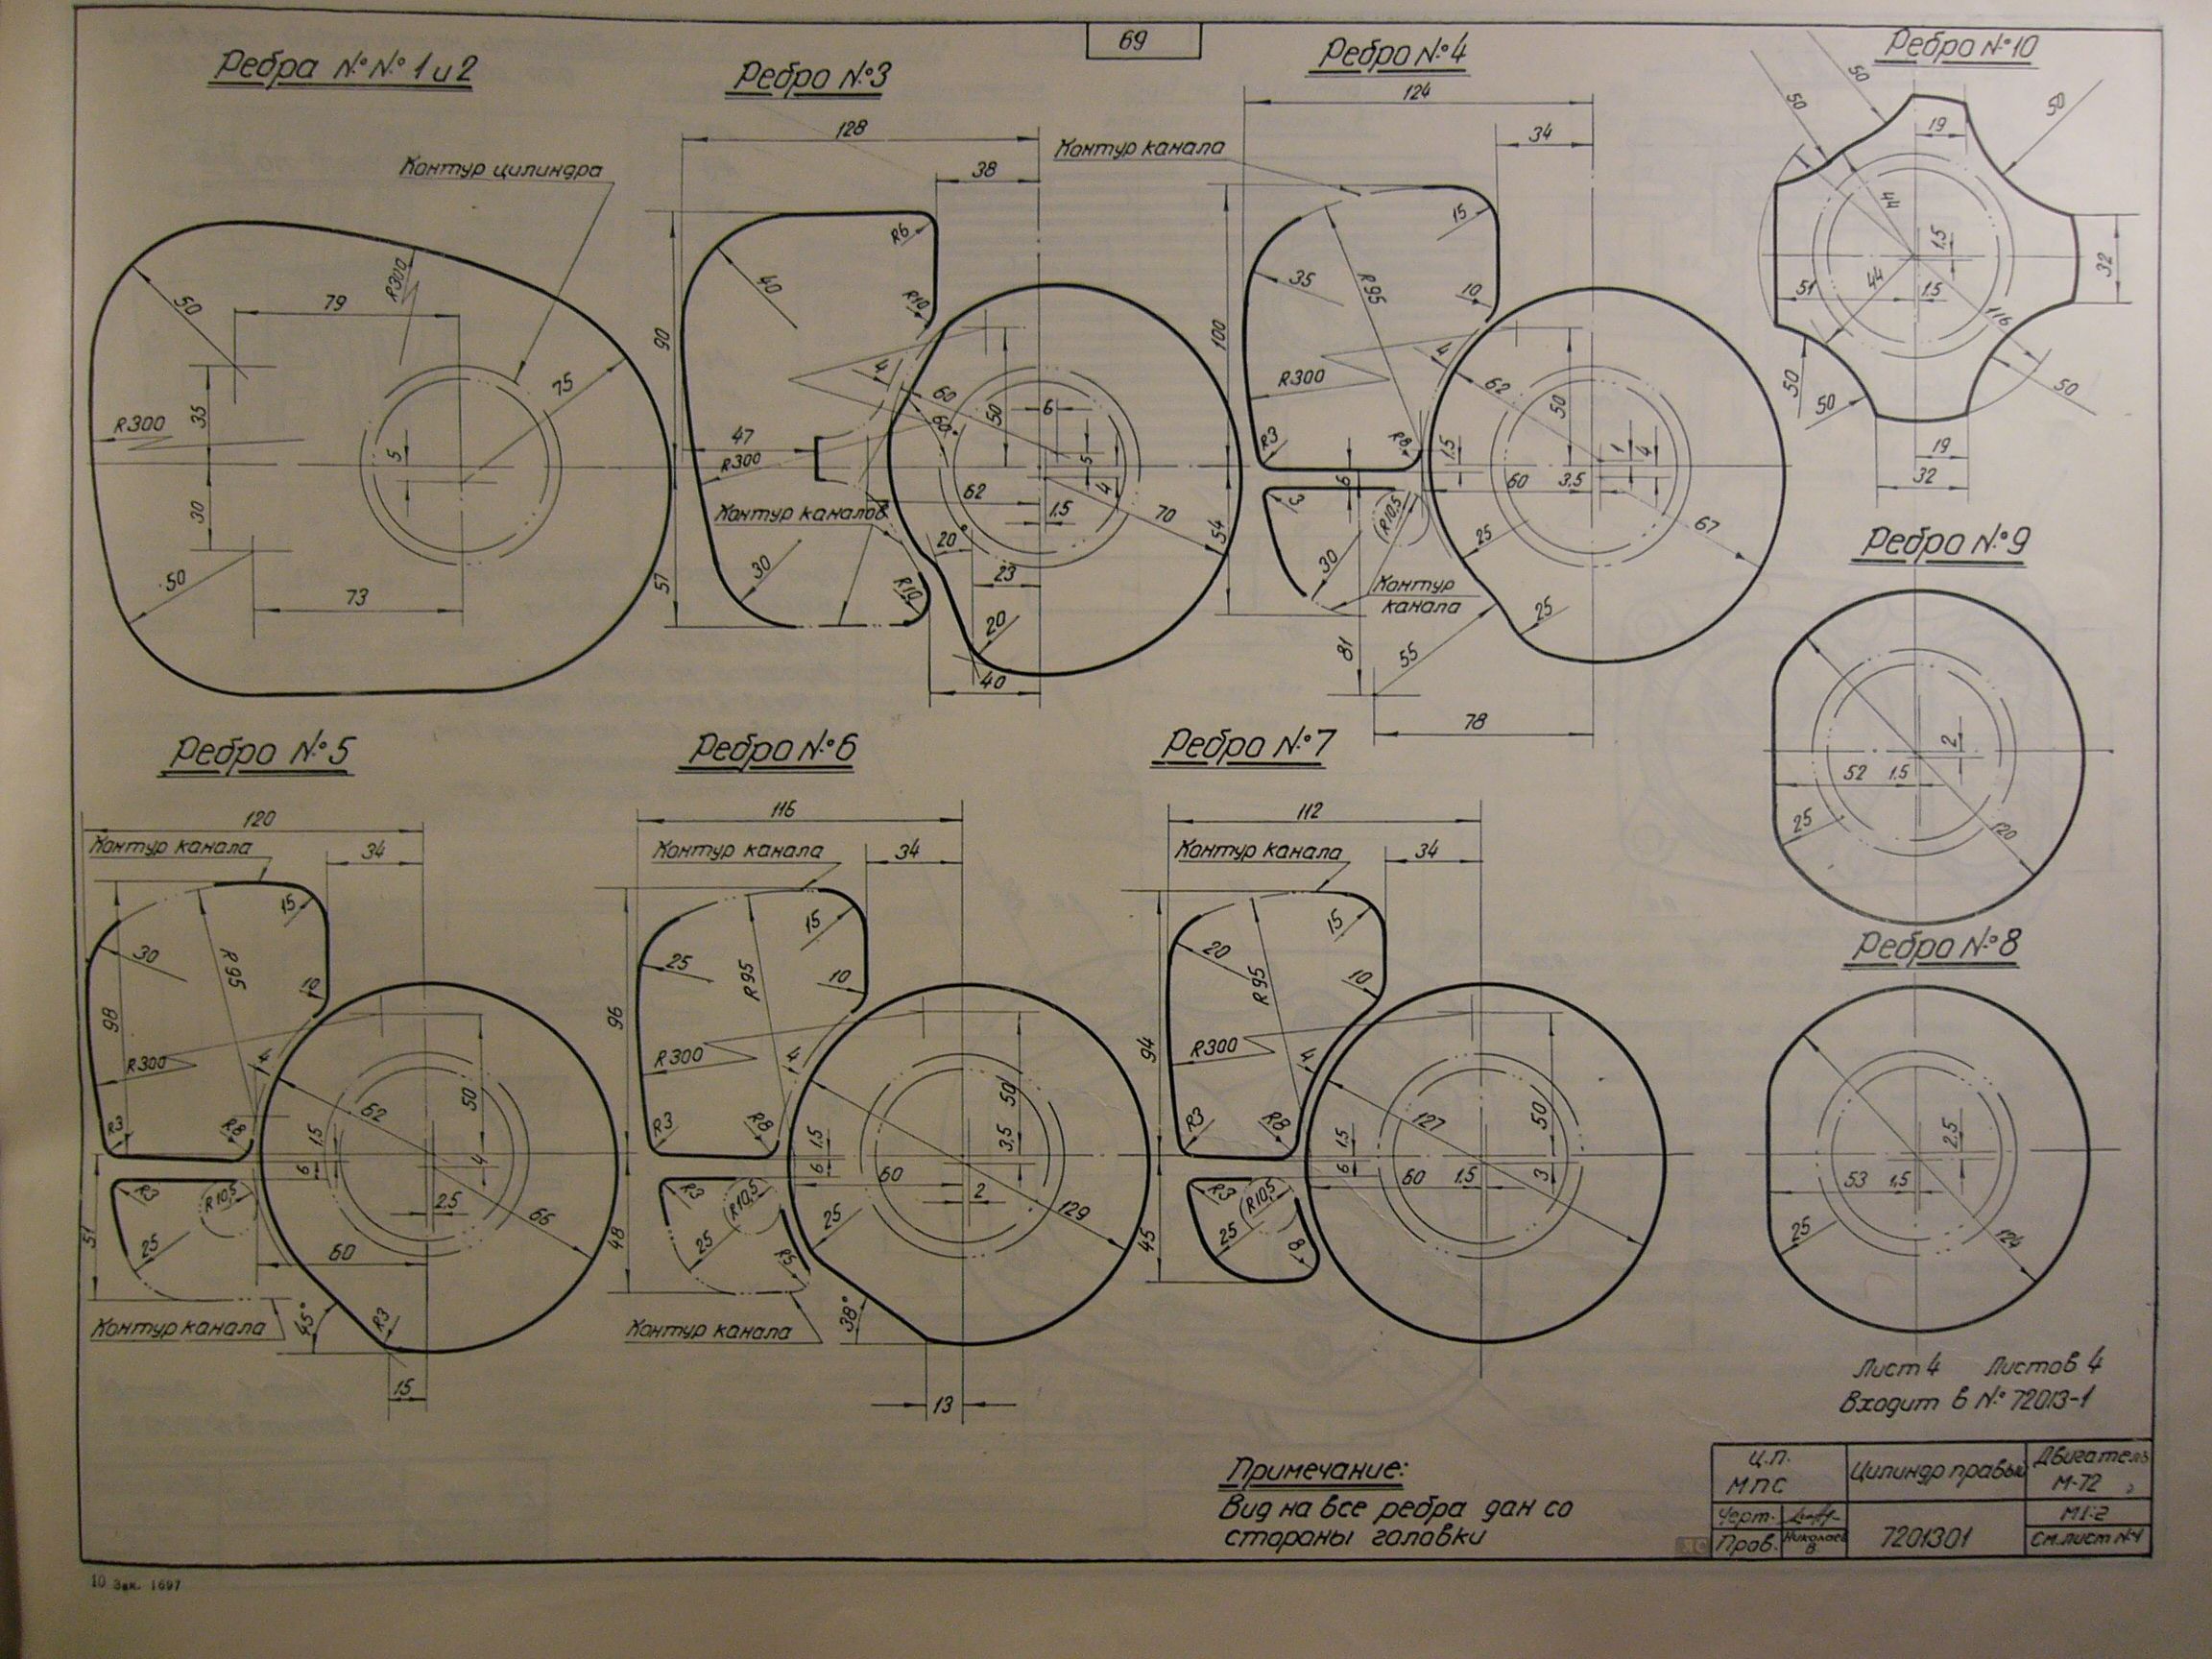 69
Ребра №№ 1 и 2
Контур цилиндра
50
79
R300
75
35
R300
5
30
50
73
Ребро №3
128
38
R6
40
R10
90
4
60
60°
50
6
47
R300
5
4
62
Контур каналов
1,5
70
20°
57
30
23
R10
20
40
Ребро №4
124
Контур канала
34
15
35
R95
10
100
4
R300
62
50
R3
R8
1,5
1
4
6
60
3,5
3
R10,5
67
54
25
30
Контур
канала
25
81
55
78
Ребро №10
50
50
50
19
44
1,5
32
44
51
1,5
116
50
50
50
19
32
Ребро №9
2
52
1,5
25
120
Ребро №8
2,5
53
1,5
25
124
Ребро №5
120
Контур канала
34
15
30
R95
10
98
4
R300
62
50
R3
R8
1,5
6
4
R3
R10,5
2,5
66
51
25
60
Контур канала
45°
R3
15
Ребро №6
116
Контур канала
34
15
25
R95
10
96
4
R300
50
R3
R8
1,5
3,5
6
60
R3
R10,5
2
25
129
48
25
R5
Контур канала
38°
13
Ребро №7
112
Контур канала
34
15
20
R95
10
94
4
R300
127
50
R3
R8
1,5
6
60
1,5
3
R3
R10,5
45
25
8
Лист 4 Листов 4
Входит в № 72013-1
Примечание:
Вид на все ребра дан со
стороны головки
Ц.П.
МПС
Цилиндр правый
Двигатель
М-72
Черт.
М1:2
Пров.
Николаев
В
7201301
См. лист №1
10 Зак. 1697